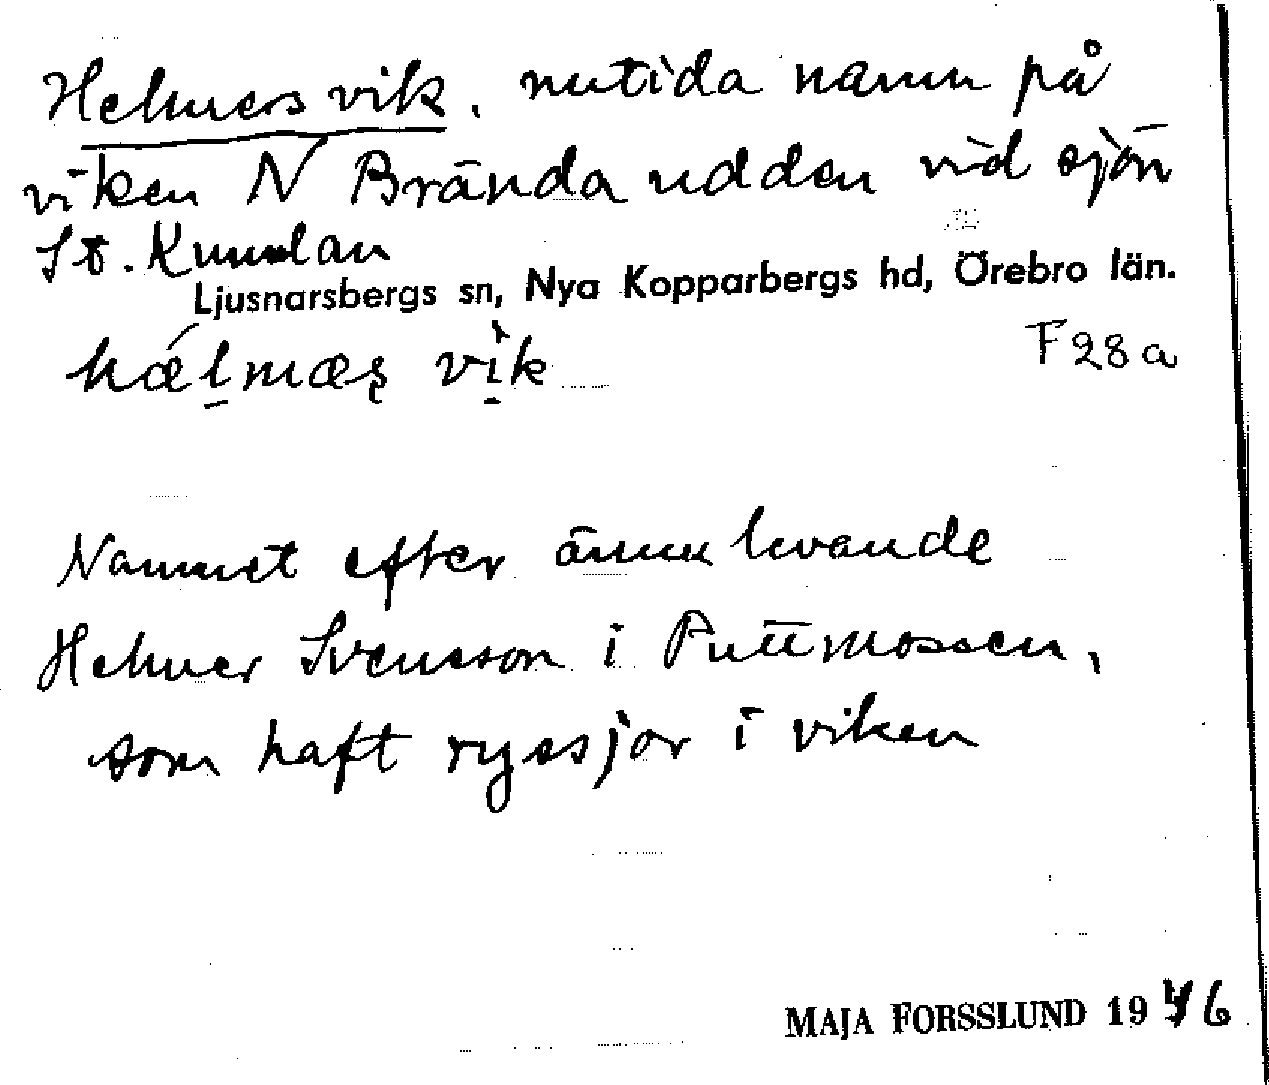 Helmersvik, nutida namn på
viken N Brända udden vid sjön
St. Kumlan
Ljusnarsbergs sn, Nya Kopparbergs hd, Örebro län.
hælmæṣ vik
F 28 a
Namnet efter ännu levande
Helmer Svensson i Puttmossen,
som haft ryssjor i viken
MAJA FORSSLUND 1946